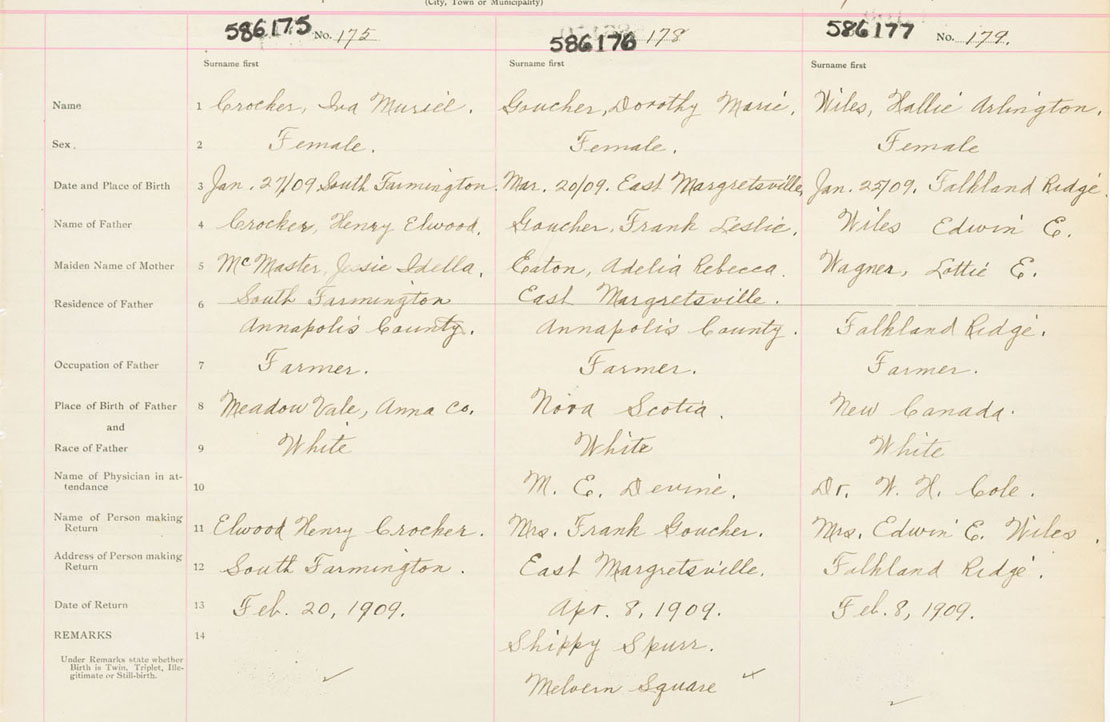 (City, Town or Municipality)
586175 No. 175 586176 178 586177 No. 179.
Surname first Surname first Surname first
Name 1 Crocker, Iva Muriel. Goucher, Dorothy Marie. Wiles, Hallie Arlington.
Sex. 2 Female. Female. Female
Date and Place of Birth 3 Jan. 27/09 South Farmington. Mar. 20/09. East Margretsville, Jan. 25/09. Falkland Ridge.
Name of Father 4 Crocker, Henry Elwood. Goucher, Frank Leslie. Wiles Edwin E.
Maiden Name of Mother 5 McMaster, Jessie Idella. Eaton, Adelia Rebecca. Wagner, Lottie E.
Residence of Father 6 South Farmington East Margretsville.
Annapolis County. Annapolis County. Falkland Ridge.
Occupation of Father 7 Farmer. Farmer. Farmer.
Place of Birth of Father 8 Meadow Vale, Anna Co. Nova Scotia. New Canada.
and
Race of Father 9 White White White
Name of Physician in at-
tendance 10 M. E. Devine. Dr. W. H. Cole.
Name of Person making
Return 11 Elwood Henry Crocker. Mrs. Frank Goucher. Mrs. Edwin E. Wiles.
Address of Person making
Return 12 South Farmington. East Margretsville. Falkland Ridge.
Date of Return 13 Feb. 20, 1909. Apr. 8, 1909. Feb. 8, 1909.
REMARKS 14 Shippy Spurr.
Under Remarks state whether
Birth is Twin, Triplet, Ille-
gitimate or Still-birth.
Melvern Square